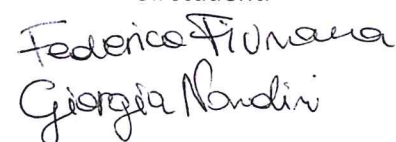 Federica Fiumana
Giorgia Nandini